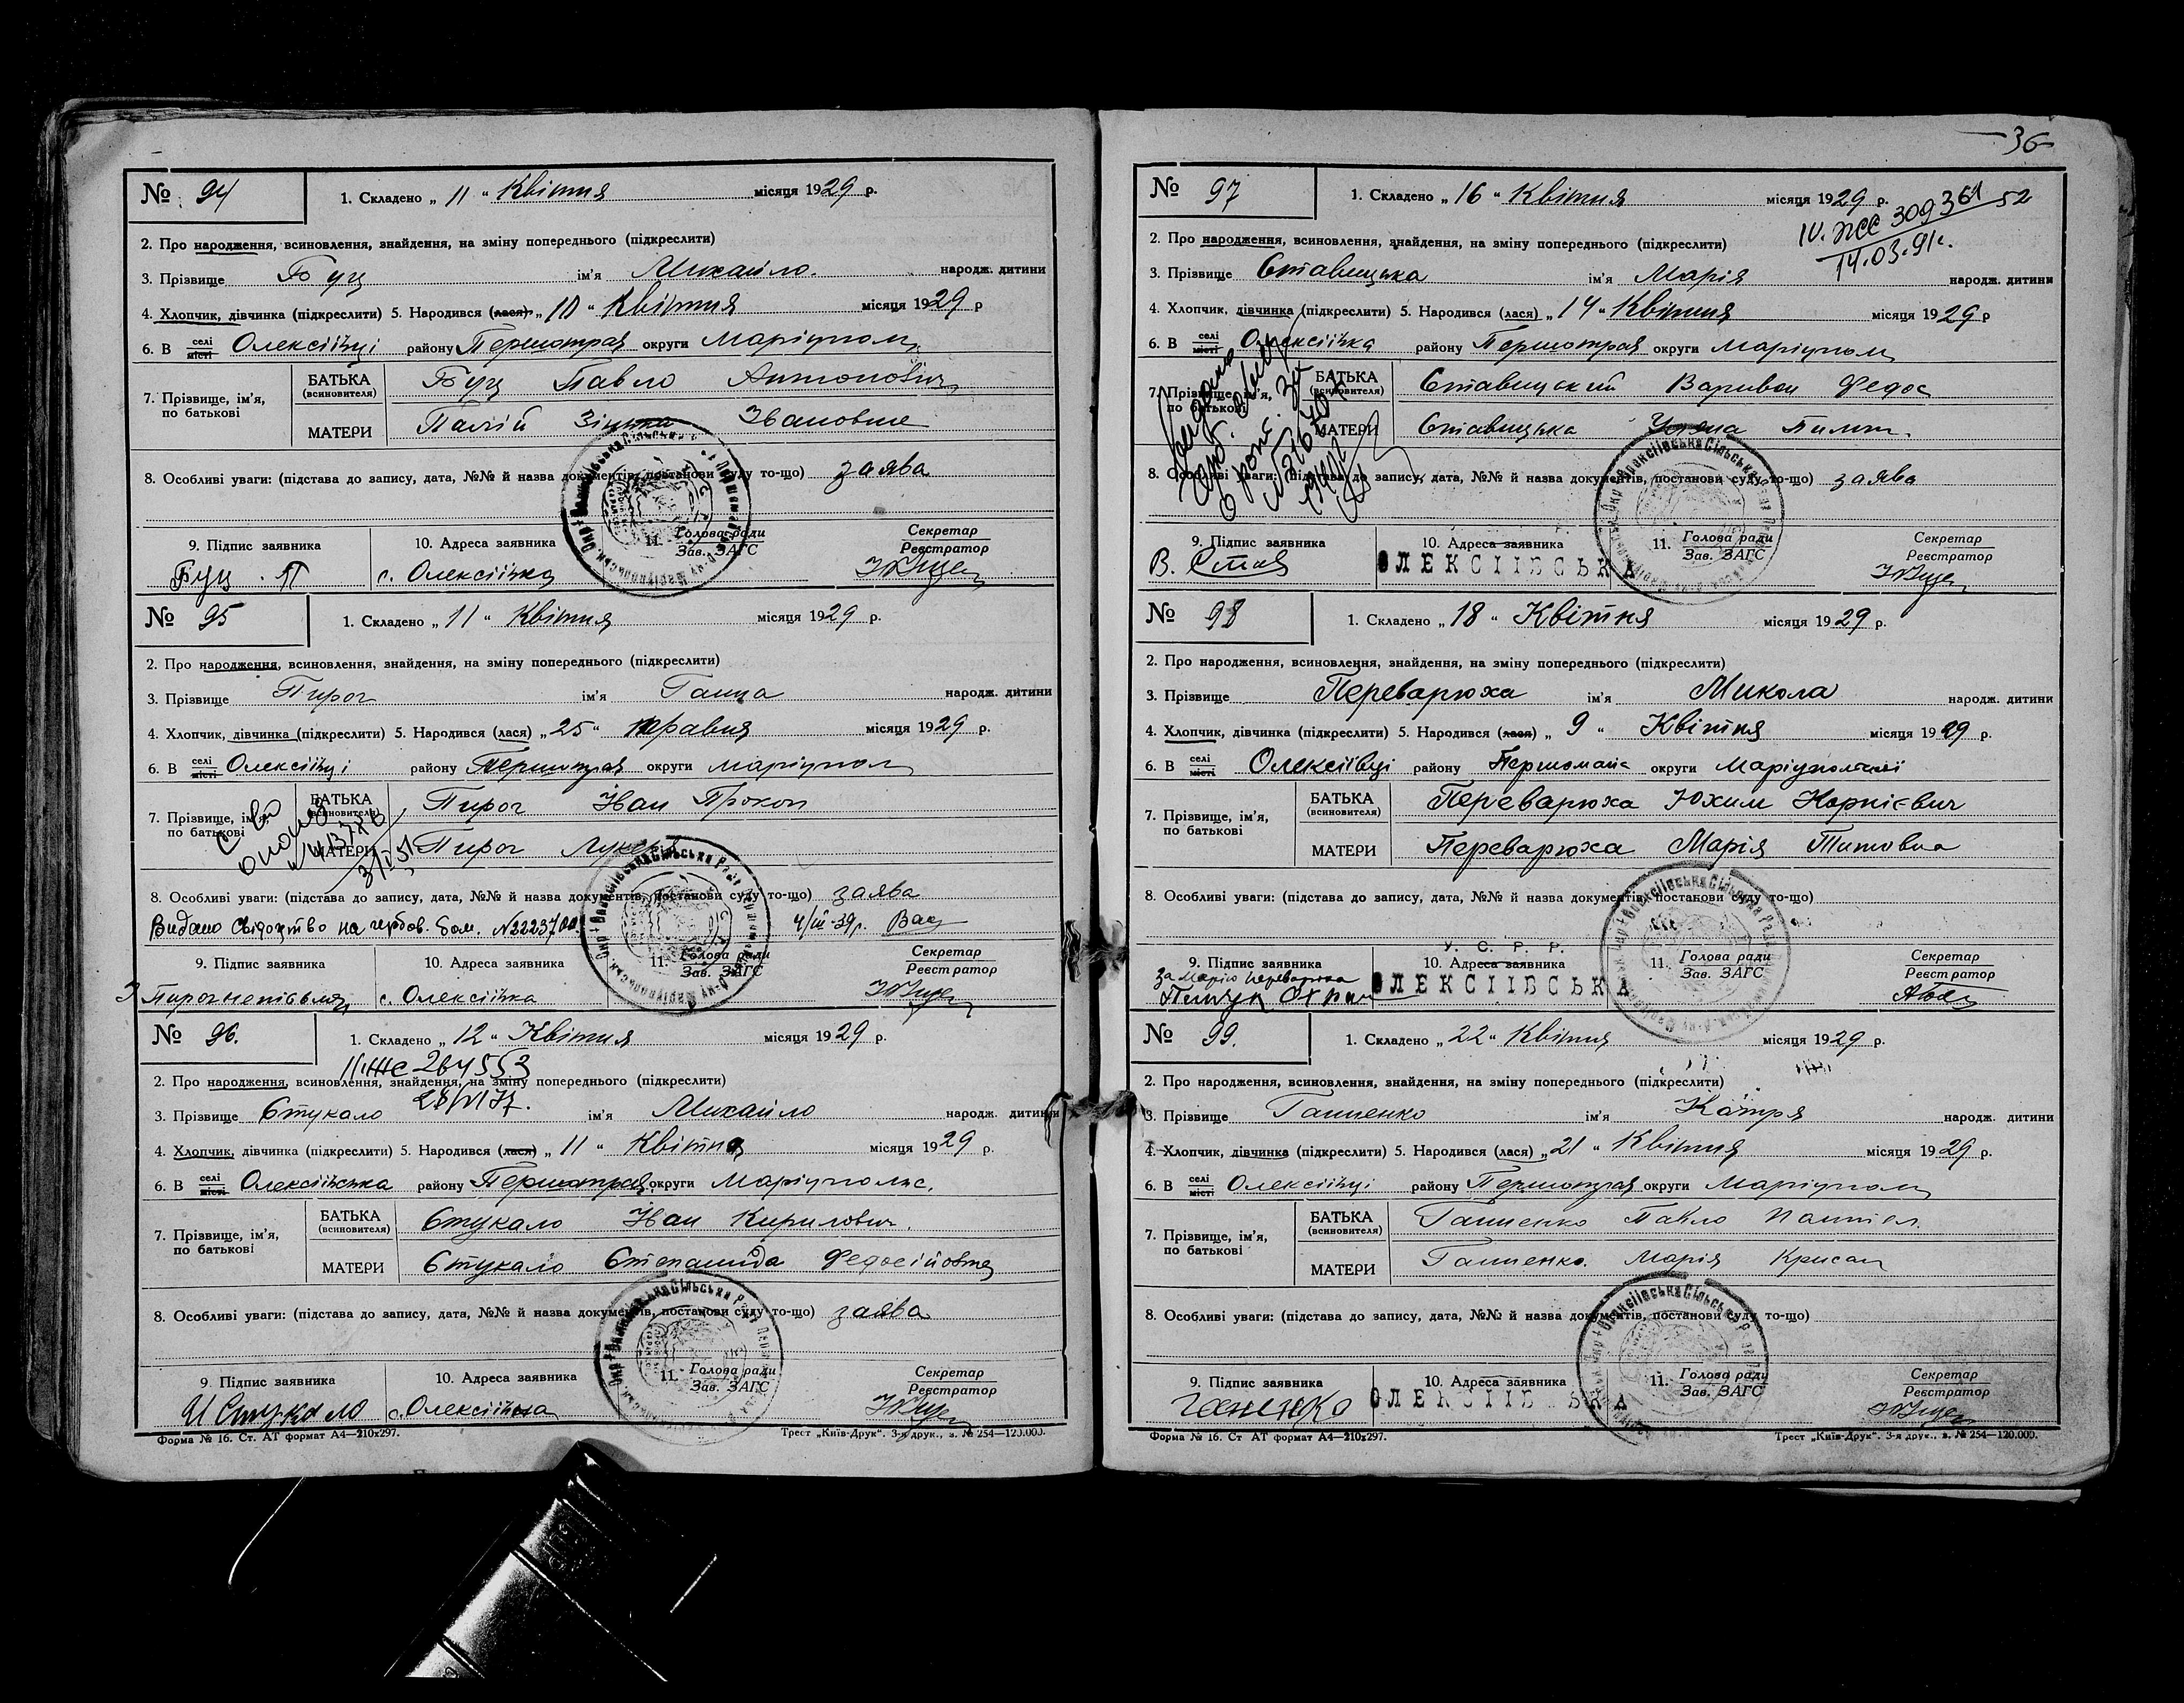 № 94
1. Складено „ 11 “ Квітня місяця 1929 р.
2. Про народження, всиновлення, знайдення, на зміну попереднього (підкреслити)
3. Прізвище Буц ім'я Михайло. народж. дитини
4. Хлопчик, дівчинка (підкреслити) 5. Народився (лася) „ 10 “ Квітня місяця 1929 р
6. В селі місті Олексіївці району округи Маріупол
7. Прізвище, ім'я, по батькові
БАТЬКА (всиновителя) Буц Павло Антонович
МАТЕРИ Палій Зінька Івановна
8. Особливі уваги: (підстава до запису, дата, №№ й назва документів, постанови суду то-що) заява
9. Підпис заявника 10. Адреса заявника 11. Голова ради Зав. ЗАГС Секретар Реєстратор
Буц П с. Олексіївка
№ 95
1. Складено „ 11 “ Квітня місяця 1929 р.
2. Про народження, всиновлення, знайдення, на зміну попереднього (підкреслити)
3. Прізвище Пирог ім'я Ганна народж. дитини
4. Хлопчик, дівчинка (підкреслити) 5. Народився (лася) „ 25 “ місяця 1929 р.
6. В селі місті Олексіївці району округи Маріупол
7. Прізвище, ім'я, по батькові
БАТЬКА (всиновителя) Пирог Іван Прокоп
МАТЕРИ Пирог Лукер
8. Особливі уваги: (підстава до запису, дата, №№ й назва документів, постанови суду то-що) заява
Видано свідоцтво на 4/III-39р.
9. Підпис заявника 10. Адреса заявника 11. Голова ради Зав. ЗАГС Секретар Реєстратор
с. Олексіївка
№ 96.
1. Складено „ 12 “ Квітня місяця 1929 р.
264553
2. Про народження, всиновлення, знайдення, на зміну попереднього (підкреслити)
3. Прізвище Стукало ім'я Михайло народж. дитини
4. Хлопчик, дівчинка (підкреслити) 5. Народився (лася) „ 11 “ Квітня місяця 1929 р.
6. В селі місті Олексіївська району округи Маріупольс.
7. Прізвище, ім'я, по батькові
БАТЬКА (всиновителя) Стукало Іван Кирилович.
МАТЕРИ Стукало Степанида Федосійовна
8. Особливі уваги: (підстава до запису, дата, №№ й назва документів, постанови суду то-що) заява
9. Підпис заявника 10. Адреса заявника 11. Голова ради Зав. ЗАГС Секретар Реєстратор
И Стукало с. Олексіївка
Форма № 16. Ст. АТ формат А4—210x297. Трест „Київ-Друк“. 3-я друк., з. № 254—120.000.
36
№ 97
1. Складено „ 16 “ Квітня місяця 1929 р.
309361 52
14.03.91г.
2. Про народження, всиновлення, знайдення, на зміну попереднього (підкреслити)
3. Прізвище Ставицька ім'я Марія народж. дитини
4. Хлопчик, дівчинка (підкреслити) 5. Народився (лася) „ 14 “ Квітня місяця 1929 р
6. В селі місті Олексіївка району округи Маріупол
7. Прізвище, ім'я, по батькові
БАТЬКА (всиновителя) Ставицький Варивон Федос
МАТЕРИ Ставицька Уляна Пилип.
8. Особливі уваги: (підстава до запису, дата, №№ й назва документів, постанови суду то-що) заява
9. Підпис заявника 10. Адреса заявника 11. Голова ради Зав. ЗАГС Секретар Реєстратор
В. Став ОЛЕКСІІВСЬКА
№ 98
1. Складено „ 18 “ Квітня місяця 1929 р.
2. Про народження, всиновлення, знайдення, на зміну попереднього (підкреслити)
3. Прізвище Переварюха ім'я Микола народж. дитини
4. Хлопчик, дівчинка (підкреслити) 5. Народився (лася) „ 9 “ Квітня місяця 1929 р.
6. В селі місті Олексіївці району Першомайс округи Маріупольської
7. Прізвище, ім'я, по батькові
БАТЬКА (всиновителя) Переварюха Юхим Корнієвич
МАТЕРИ Переварюха Марія Титовна
8. Особливі уваги: (підстава до запису, дата, №№ й назва документів, постанови суду то-що)
У. С. Р. Р.
9. Підпис заявника 10. Адреса заявника 11. Голова ради Зав. ЗАГС Секретар Реєстратор
за Марію Переварюха
ОЛЕКСІІВСЬКА
№ 99.
1. Складено „ 22 “ Квітня місяця 1929 р.
2. Про народження, всиновлення, знайдення, на зміну попереднього (підкреслити)
3. Прізвище Ганненко ім'я Катря народж. дитини
4. Хлопчик, дівчинка (підкреслити) 5. Народився (лася) „ 21 “ Квітня місяця 1929 р.
6. В селі місті Олексіївці району округи Маріупол
7. Прізвище, ім'я, по батькові
БАТЬКА (всиновителя) Ганненко Павло Пантел.
МАТЕРИ Ганненко Марія Крисан
8. Особливі уваги: (підстава до запису, дата, №№ й назва документів, постанови суду то-що)
9. Підпис заявника 10. Адреса заявника 11. Голова ради Зав. ЗАГС Секретар Реєстратор
ОЛЕКСІІВСЬКА
Форма № 16. Ст АТ формат А4—210x297. Трест „Київ-Друк“. 3-я друк., з. № 254—120.000.